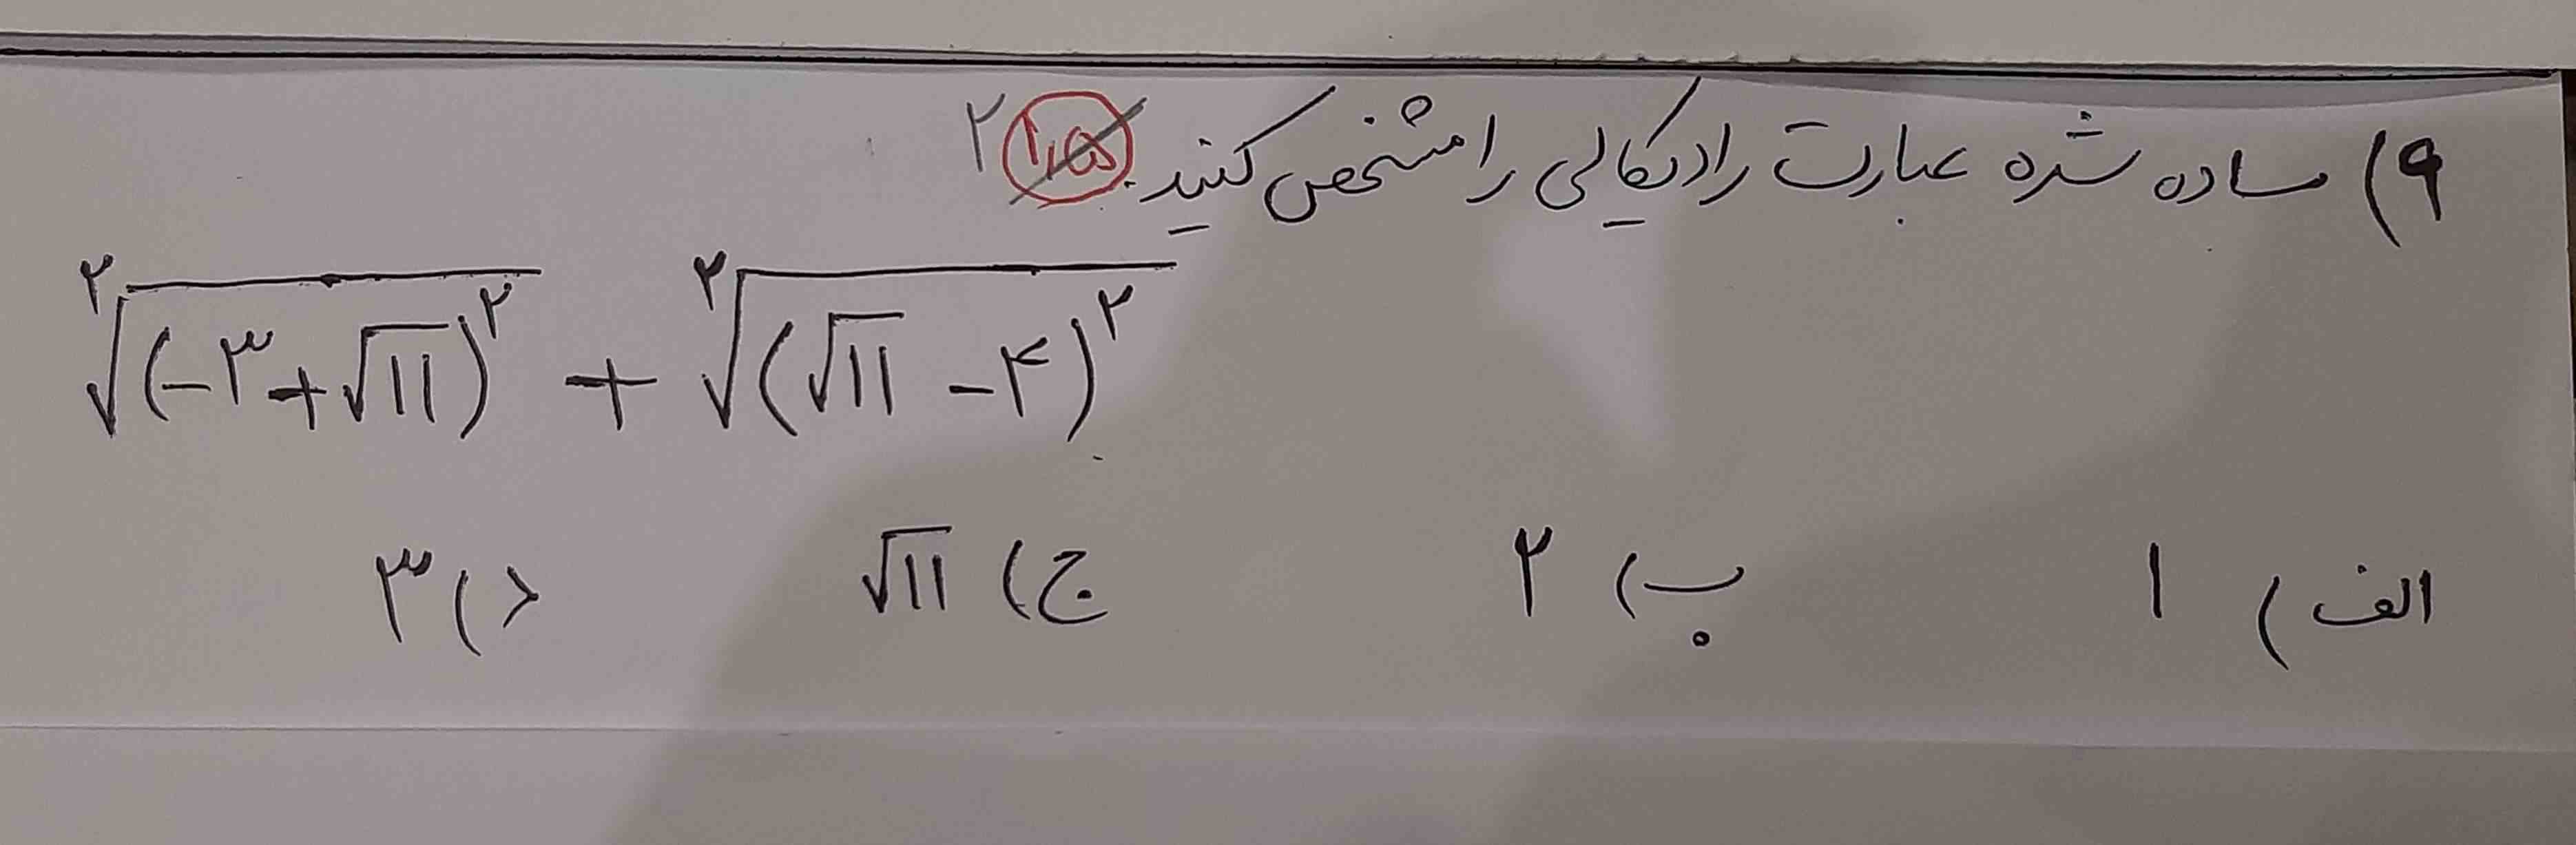 ۹) ساده شده عبارت رادیکالی را مشخص کنید. ۱٫۵ ۲
²√(-۳+√۱۱)² + ²√(√۱۱ -۴)²
الف) ۱ ب) ۲ ج) √۱۱ د) ۳